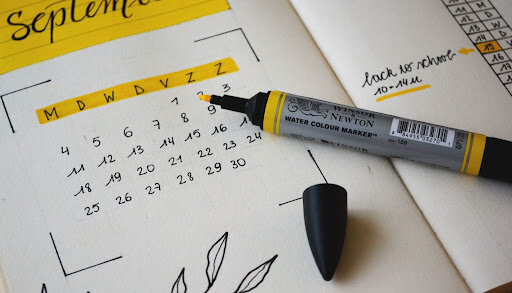 September
M D W D V Z Z
1 2 3
4 5 6 7 8 9
11 12 13 14 15 16
18 19 20 21 22 23 24
25 26 27 28 29 30
WINSOR
& NEWTON
WATER COLOUR MARKER™
WINSOR
back to school
10-14u
12
13
14
15
16